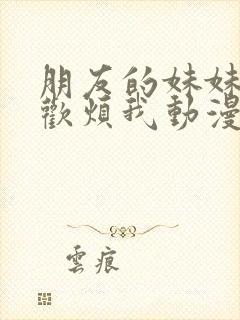 朋友的妹妹
歡煩我動漫
雲痕